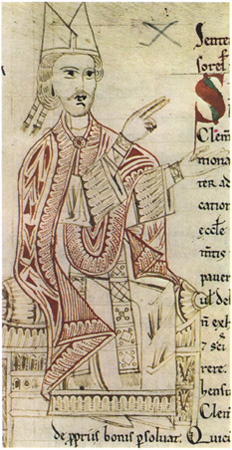 Sente
sorel
S
Clem
mona
ter ad
cation
eccle
mitis
pauer
ul del
n exh
7 sci
rere.
hensu
Clem
de ppriis bonis psoluat. Quici